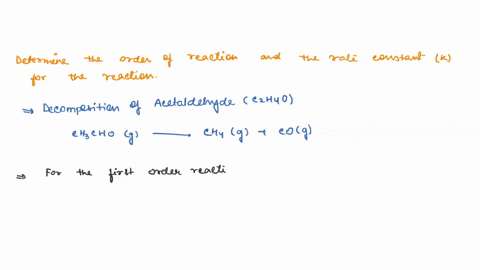 Determine the order of reaction and the rate constant (K)
for the reaction.
⇒ Decomposition of Acetaldehyde (C2H4O)
CH3CHO (g) ⟶ CH4 (g) + CO(g)
⇒ For the first order reacti